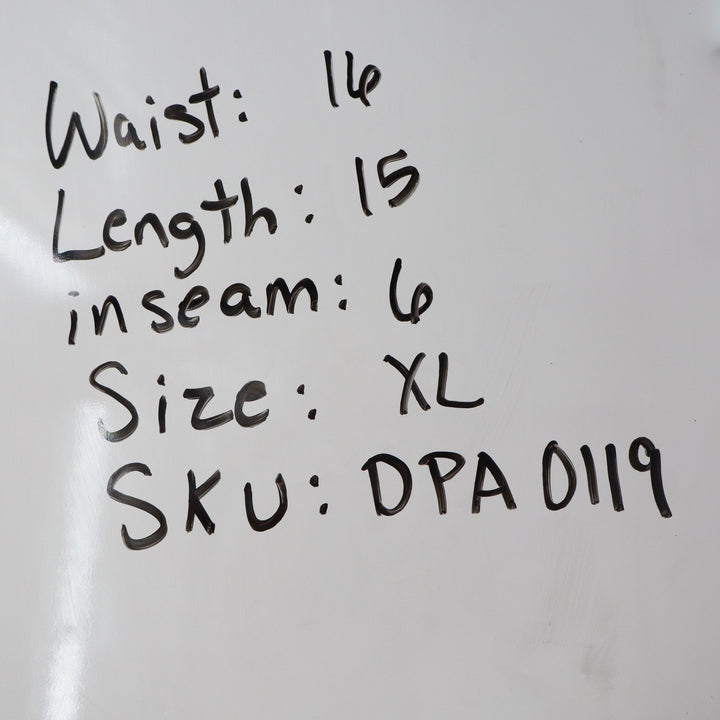 Waist: 16
Length: 15
inseam: 6
Size: XL
SKU: DPA 0119